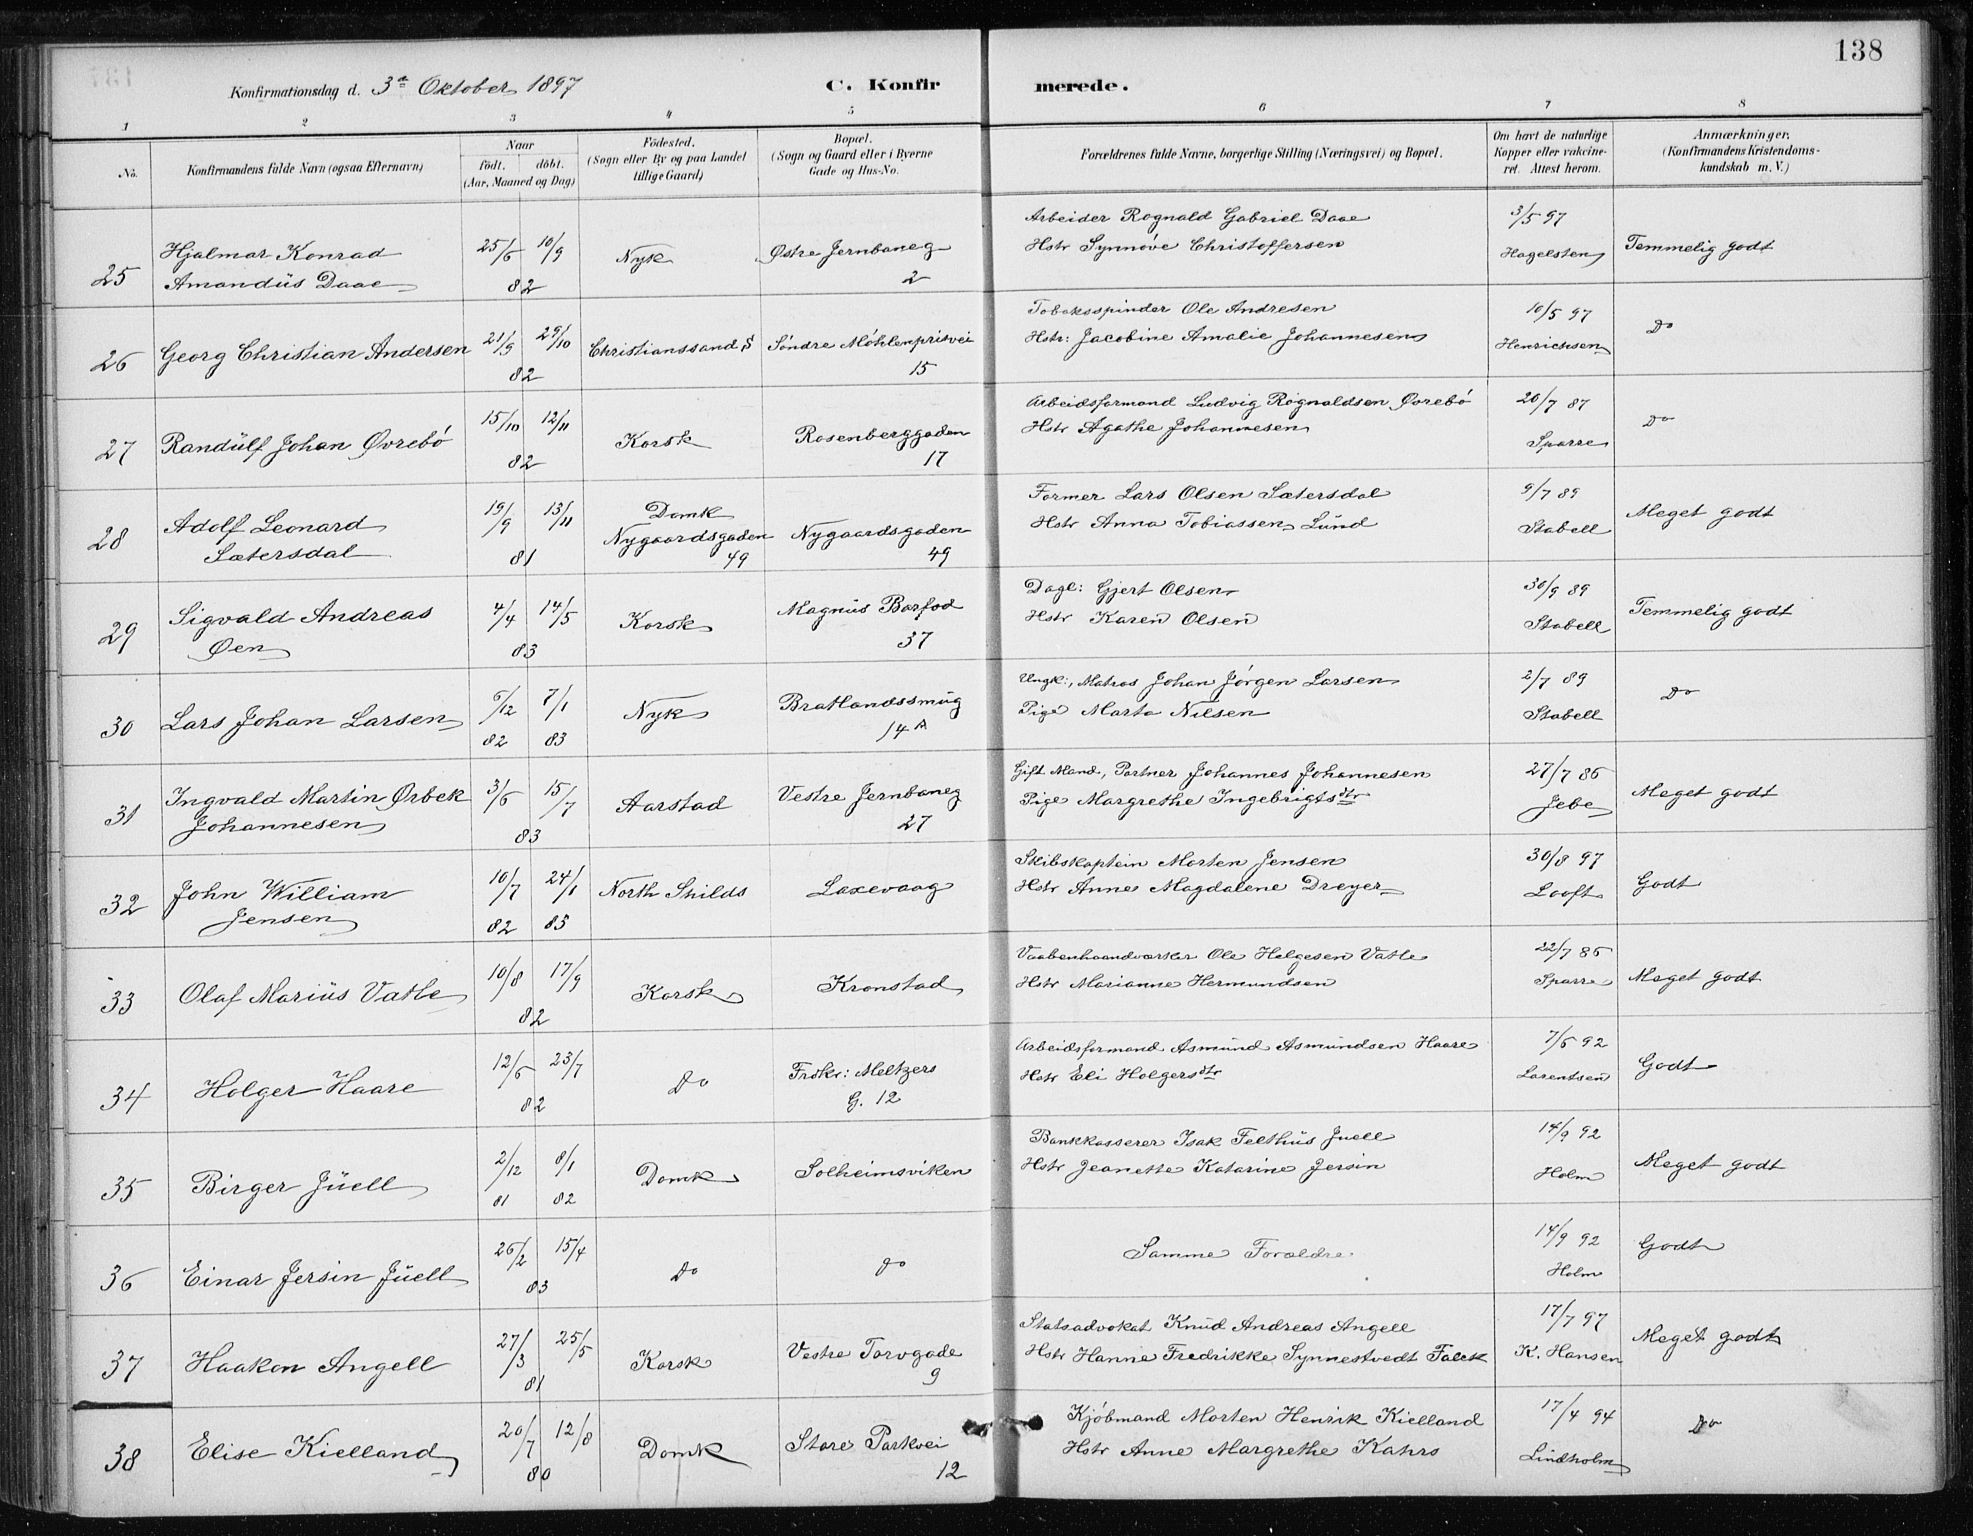 138
Konfirmationsdag d. 3die Oktober 1897 C. Konfirmerede.
1 2 3 4 5 6 7 8
No. Konfirmandens fulde Navn (ogsaa Efternavn) Naar födt. döbt. (Aar, Maaned og Dag) Födested. (Sogn eller By og paa Landet tillige Gaard) Bopæl. (Sogn og Gaard eller i Byerne Gade og Hus-No. Forældrenes fulde Navne, borgerlige Stilling (Næringsvei) og Bopæl. Om havt de naturlige Kopper eller vakcineret. Attest herom. Anmærkninger. (Konfirmandens Kristendomskundskab m. V.)
25 Hjalmar Konrad Amandus Daae 25/6 10/9 82 Nyk Østre Jernbaneg 2 Arbeider Rognald Gabriel Daae Hstr Synnöve Christoffersen 3/5 97 Hagelsten Temmelig godt
26 Georg Christian Andersen 21/9 29/10 82 Christianssand S Söndre Möhlenprisvei 15 Tobaksspinder Ole Andresen Hstr: Jacobine Amalie Johannesen 10/5 97 Henrichsen Do
27 Randulf Johan Øvrebö 15/10 12/11 82 Korsk Rosenberggaden 17 Arbeidsformand Ludvig Rognaldsen Øvrebö Hstr Agathe Johannesen 20/7 87 Sparre Do
28 Adolf Leonard Sætersdal 19/9 13/11 81 Domk Nygaardsgaden 49 Nygaardsgaden 49 Former Lars Olsen Sætersdal Hstr Anna Tobiassen Lund 9/7 89 Stabell Meget godt
29 Sigvald Andreas Øen 4/4 14/5 83 Korsk Magnus Barfod 37 Dagl: Gjert Olsen Hstr Karen Olsen 30/9 89 Stabell Temmelig godt
30 Lars Johan Larsen 6/12 82 7/1 83 Nyk Bratlandssmug 14 A Ungk:, Matros Johan Jörgen Larsen Pige Marta Nilsen 2/7 89 Stabell Do
31 Ingvald Martin Ørbek Johannesen 3/6 15/7 83 Aarstad Vestre Jernbaneg 27 Gift Mand, Partner Johannes Johannesen Pige Margrethe Ingebrigtsdtr 27/7 86 Jebe Meget godt
32 John William Jensen 10/7 82 24/1 83 North Shilds Laxevaag Skibskaptein Morten Jensen Hstr Anne Magdalene Dreyer 30/8 97 Looft Godt
33 Olaf Marius Vatle 10/8 17/9 82 Korsk Kronstad Vaabenhaandværker Ole Helgesen Vatle Hstr Marianne Hermundsen 22/7 86 Sparre Meget godt
34 Holger Haare 12/6 23/7 82 Do Frskr: Meltzers G. 12 Arbeidsformand Asmund Asmundsen Haare Hstr Eli Holgersdtr 7/6 92 Larentsen Godt
35 Birger Juell 2/12 81 8/1 82 Domk Solheimsviken Bankkasserer Isak Felthus Juell Hstr Jeanette Katarine Jersin 14/9 92 Holm Meget godt
36 Einar Jersin Juell 26/2 15/4 83 Do Do Samme Forældre 14/9 92 Holm Godt
37 Haakon Angell 27/3 25/5 81 Korsk Vestre Torvgade 9 Statsadvokat Knud Andreas Angell Hstr Hanne Fredrikke Synnestvedt Falck 17/7 97 K. Hansen Meget godt
38 Elise Kielland 20/7 12/8 80 Domk Store Parkvei 12 Kjöbmand Morten Henrik Kielland Hstr Anne Margrethe Kahrs 17/4 94 Lindholm Do